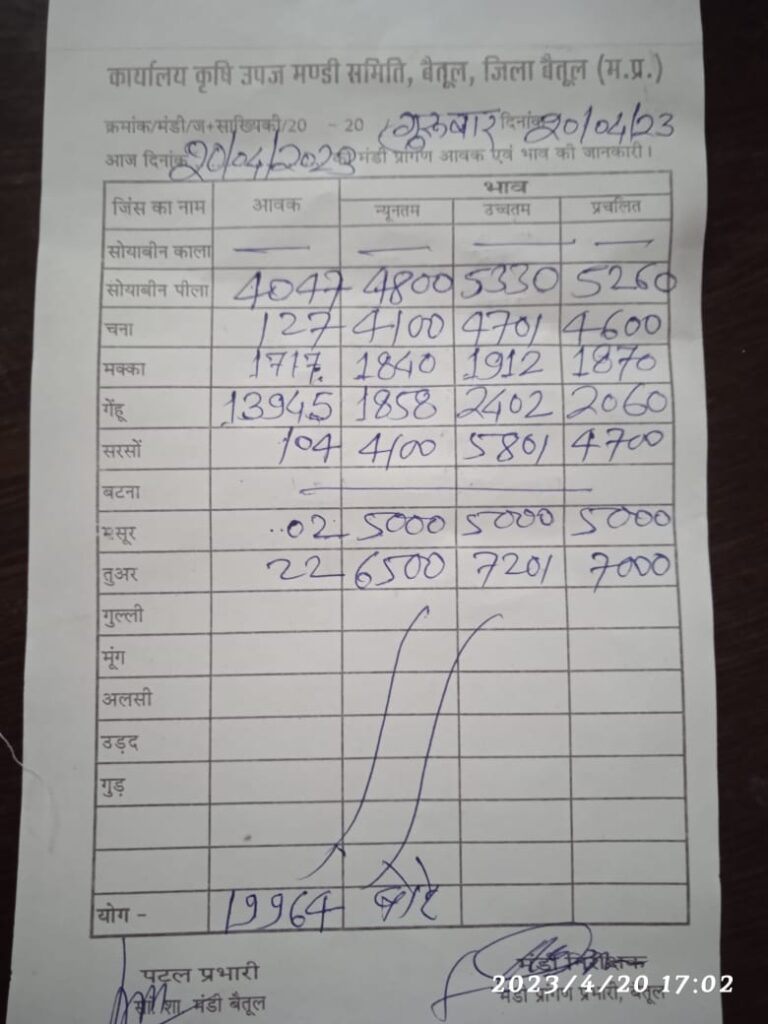 कार्यालय कृषि उपज मण्डी समिति, बैतूल, जिला बैतूल (म.प्र.)
क्रमांक/मंडी/ज+सांख्यिकी/20 - 20 गुरूबार दिनांक 20/04/23
आज दिनांक 20/04/2023 मंडी प्रांगण आवक एवं भाव की जानकारी।
जिंस का नाम आवक भाव
न्यूनतम उच्चतम प्रचलित
सोयाबीन काला — — — —
सोयाबीन पीला 4047 4800 5330 5260
चना 127 4100 4701 4600
मक्का 1717 1840 1912 1870
गेंहू 13945 1858 2402 2060
सरसों 104 4100 5801 4700
बटना —
मसूर 02 5000 5000 5000
तुअर 22 6500 7201 7000
गुल्ली
मूंग
अलसी
उड़द
गुड़
योग - 19964 बोरे
पटल प्रभारी
मंडी बैतूल
मंडी निरीक्षक
मंडी प्रांगण प्रभारी, बैतूल
2023/4/20 17:02